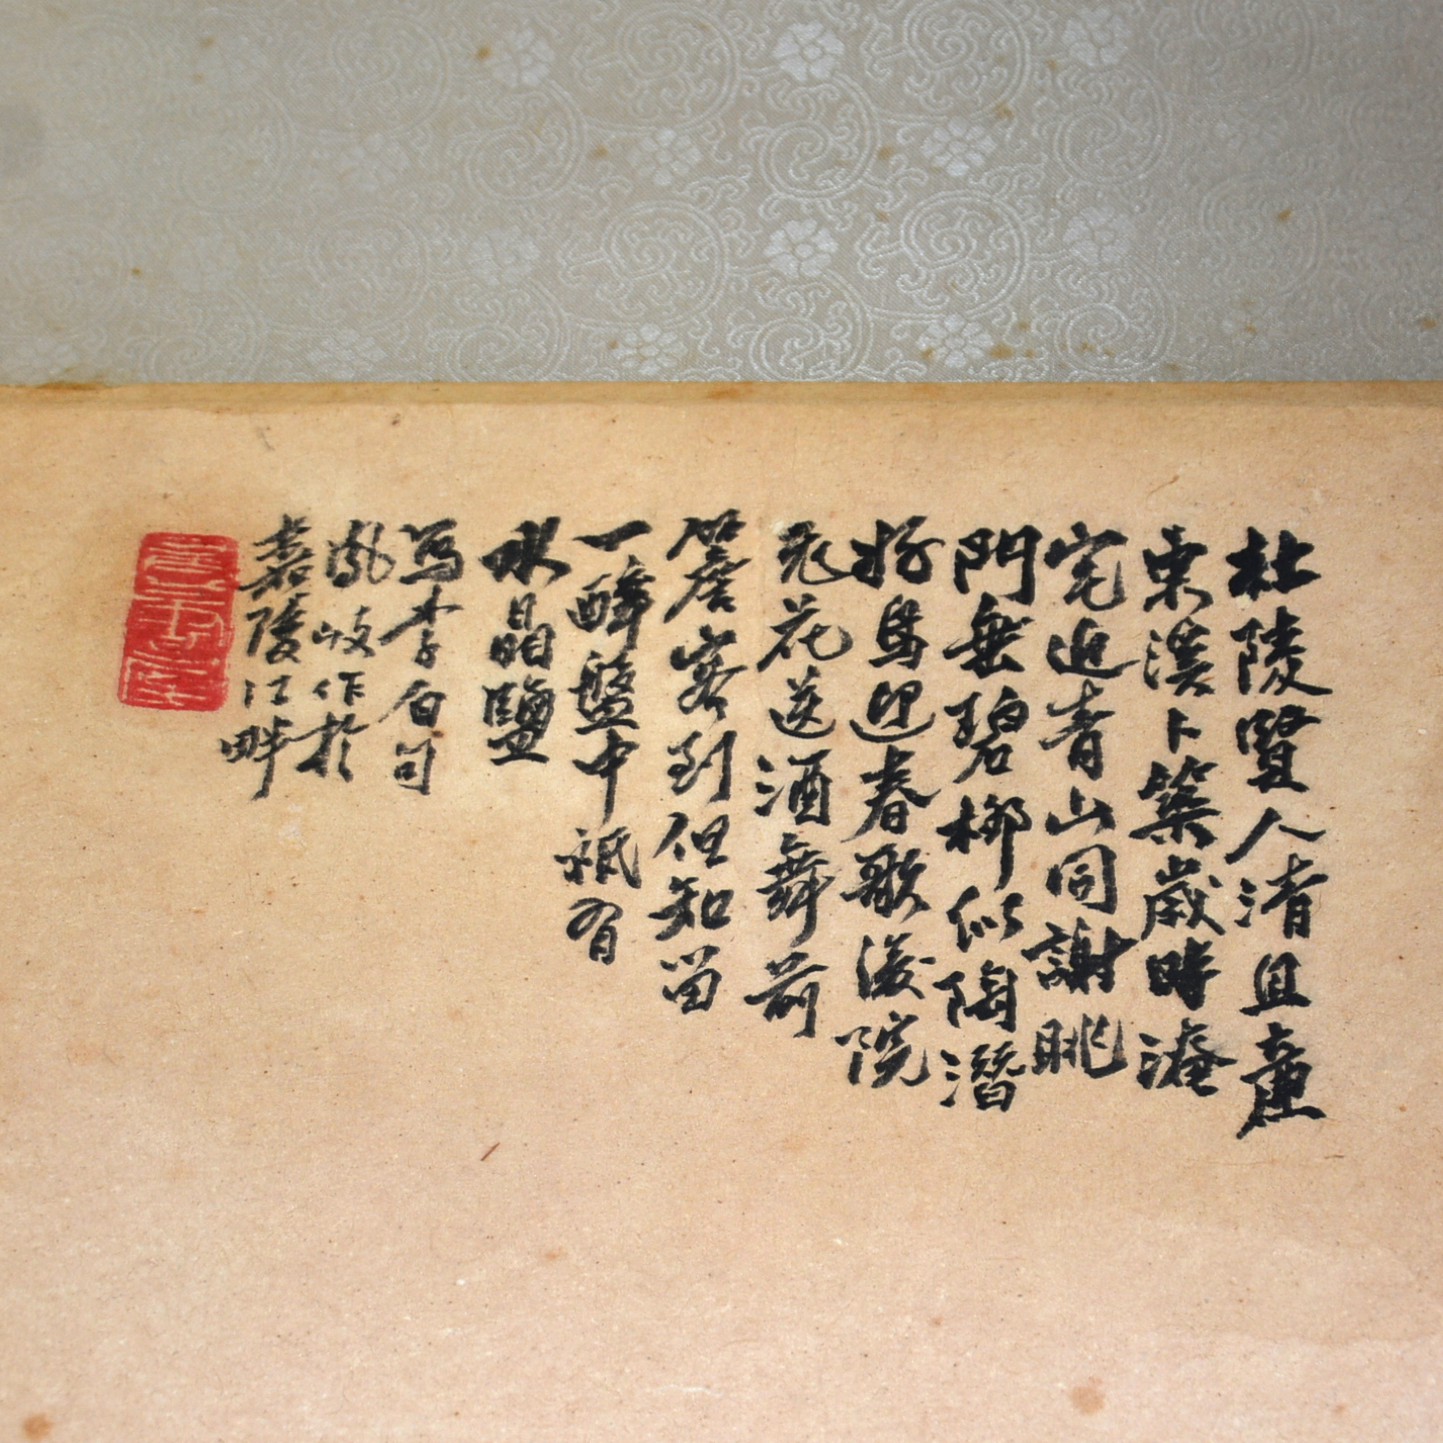 杜陵賢人清且廉
東溪卜築歲時淹
宅近青山同謝眺
門垂碧柳似陶潛
好鳥迎春歌後院
飛花送酒舞前
簷客到但知留
一醉盤中祗有
水晶鹽
写李白句
鳳岐作於
嘉陵江畔